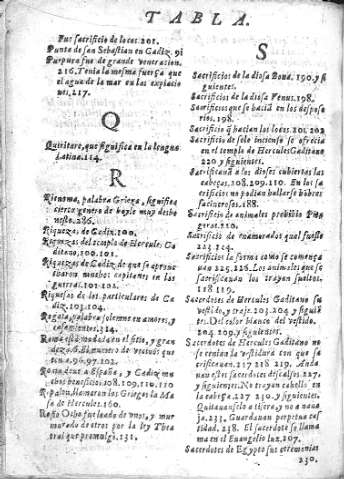 TABLA.
Fue sacrificio de locos. 201.
Punta de san Sebastian en Cadiz. 91
Purpura fue de grande veneracion.
216. Tenia la mesma fuerça que
el agua de la mar en las expiacio
nes. 217.
Q
Quiritare, que significa en la lengua
Latina. 114.
R
palabra Griega, significa
cierto genero de bayle muy desho
nesto. 286.
Riquezas de Cadiz. 100.
Riquezas del templo de Hercule: Ca
ditano, 100. 101.
Riquezas de Cadiz, de que se aprove
charon muchos capitanes en las
guerras. 101. 102.
Riquezas de los particulares de Ca
diz. 103. 104.
palabra solemne en amores, y
casamientos. 314.
en el sitio, y gran
de vezinos que
tenia. 96. 97. 102.
a España, y Cadiz mu
chos beneficios. 108. 109. 110. 110
llamaron los Griegos la Ma
sa de Hercules. 160.
Rosto fue loado de unos, y mur
murado de otros por la ley Thea
tral que promulgò. 131.
S
Sacrificios de la diosa Bona. 190. y si
guientes.
Sacrificios de la diosa Venus. 198.
Sacrificios que se bacia en los desposo
rios. 198.
Sacrificio q̃ hacian los locos. 201. 202
Sacrificio de solo incienso se ofrecia
en el templo de Hercules Gaditano
220 y siguientes.
Sacrificauã a los dioses cubiertas las
cabeças. 108. 209. 110. En los sa
crificios no podian hallarse bibras
facinerosos. 188.
Sacrificio de animales probibio Pita
goras. 210.
Sacrificio de enamorados qual fuesse
223. 224.
Sacrificios la forma como se comença
van 225. 226. Los animales que se
sacrificauan los trayan sueltos.
118. 119.
Sacerdotes de Hercules Gaditano su
vestido, y traje. 203. 204. y siguien
tes. Del color blanco del vestido.
204. 209. y siguientes.
Sacerdotes de Hercules Gaditano no
se cenian la vestidura con que sa
crificauan. 217 218 219. Anda
uan estos sacerdotes descalços. 227.
y siguientes. No trayan cabello en
la cabeça. 227 230. y siguientes.
Quitauanselo a tixera, y no a naua
ja. 233. Guardauan perpetua cas
tidad. 238. El sacerdote se llama
ma en el Evangelio luz. 207.
Sacerdotes de Egypto sus ceremonias
230.